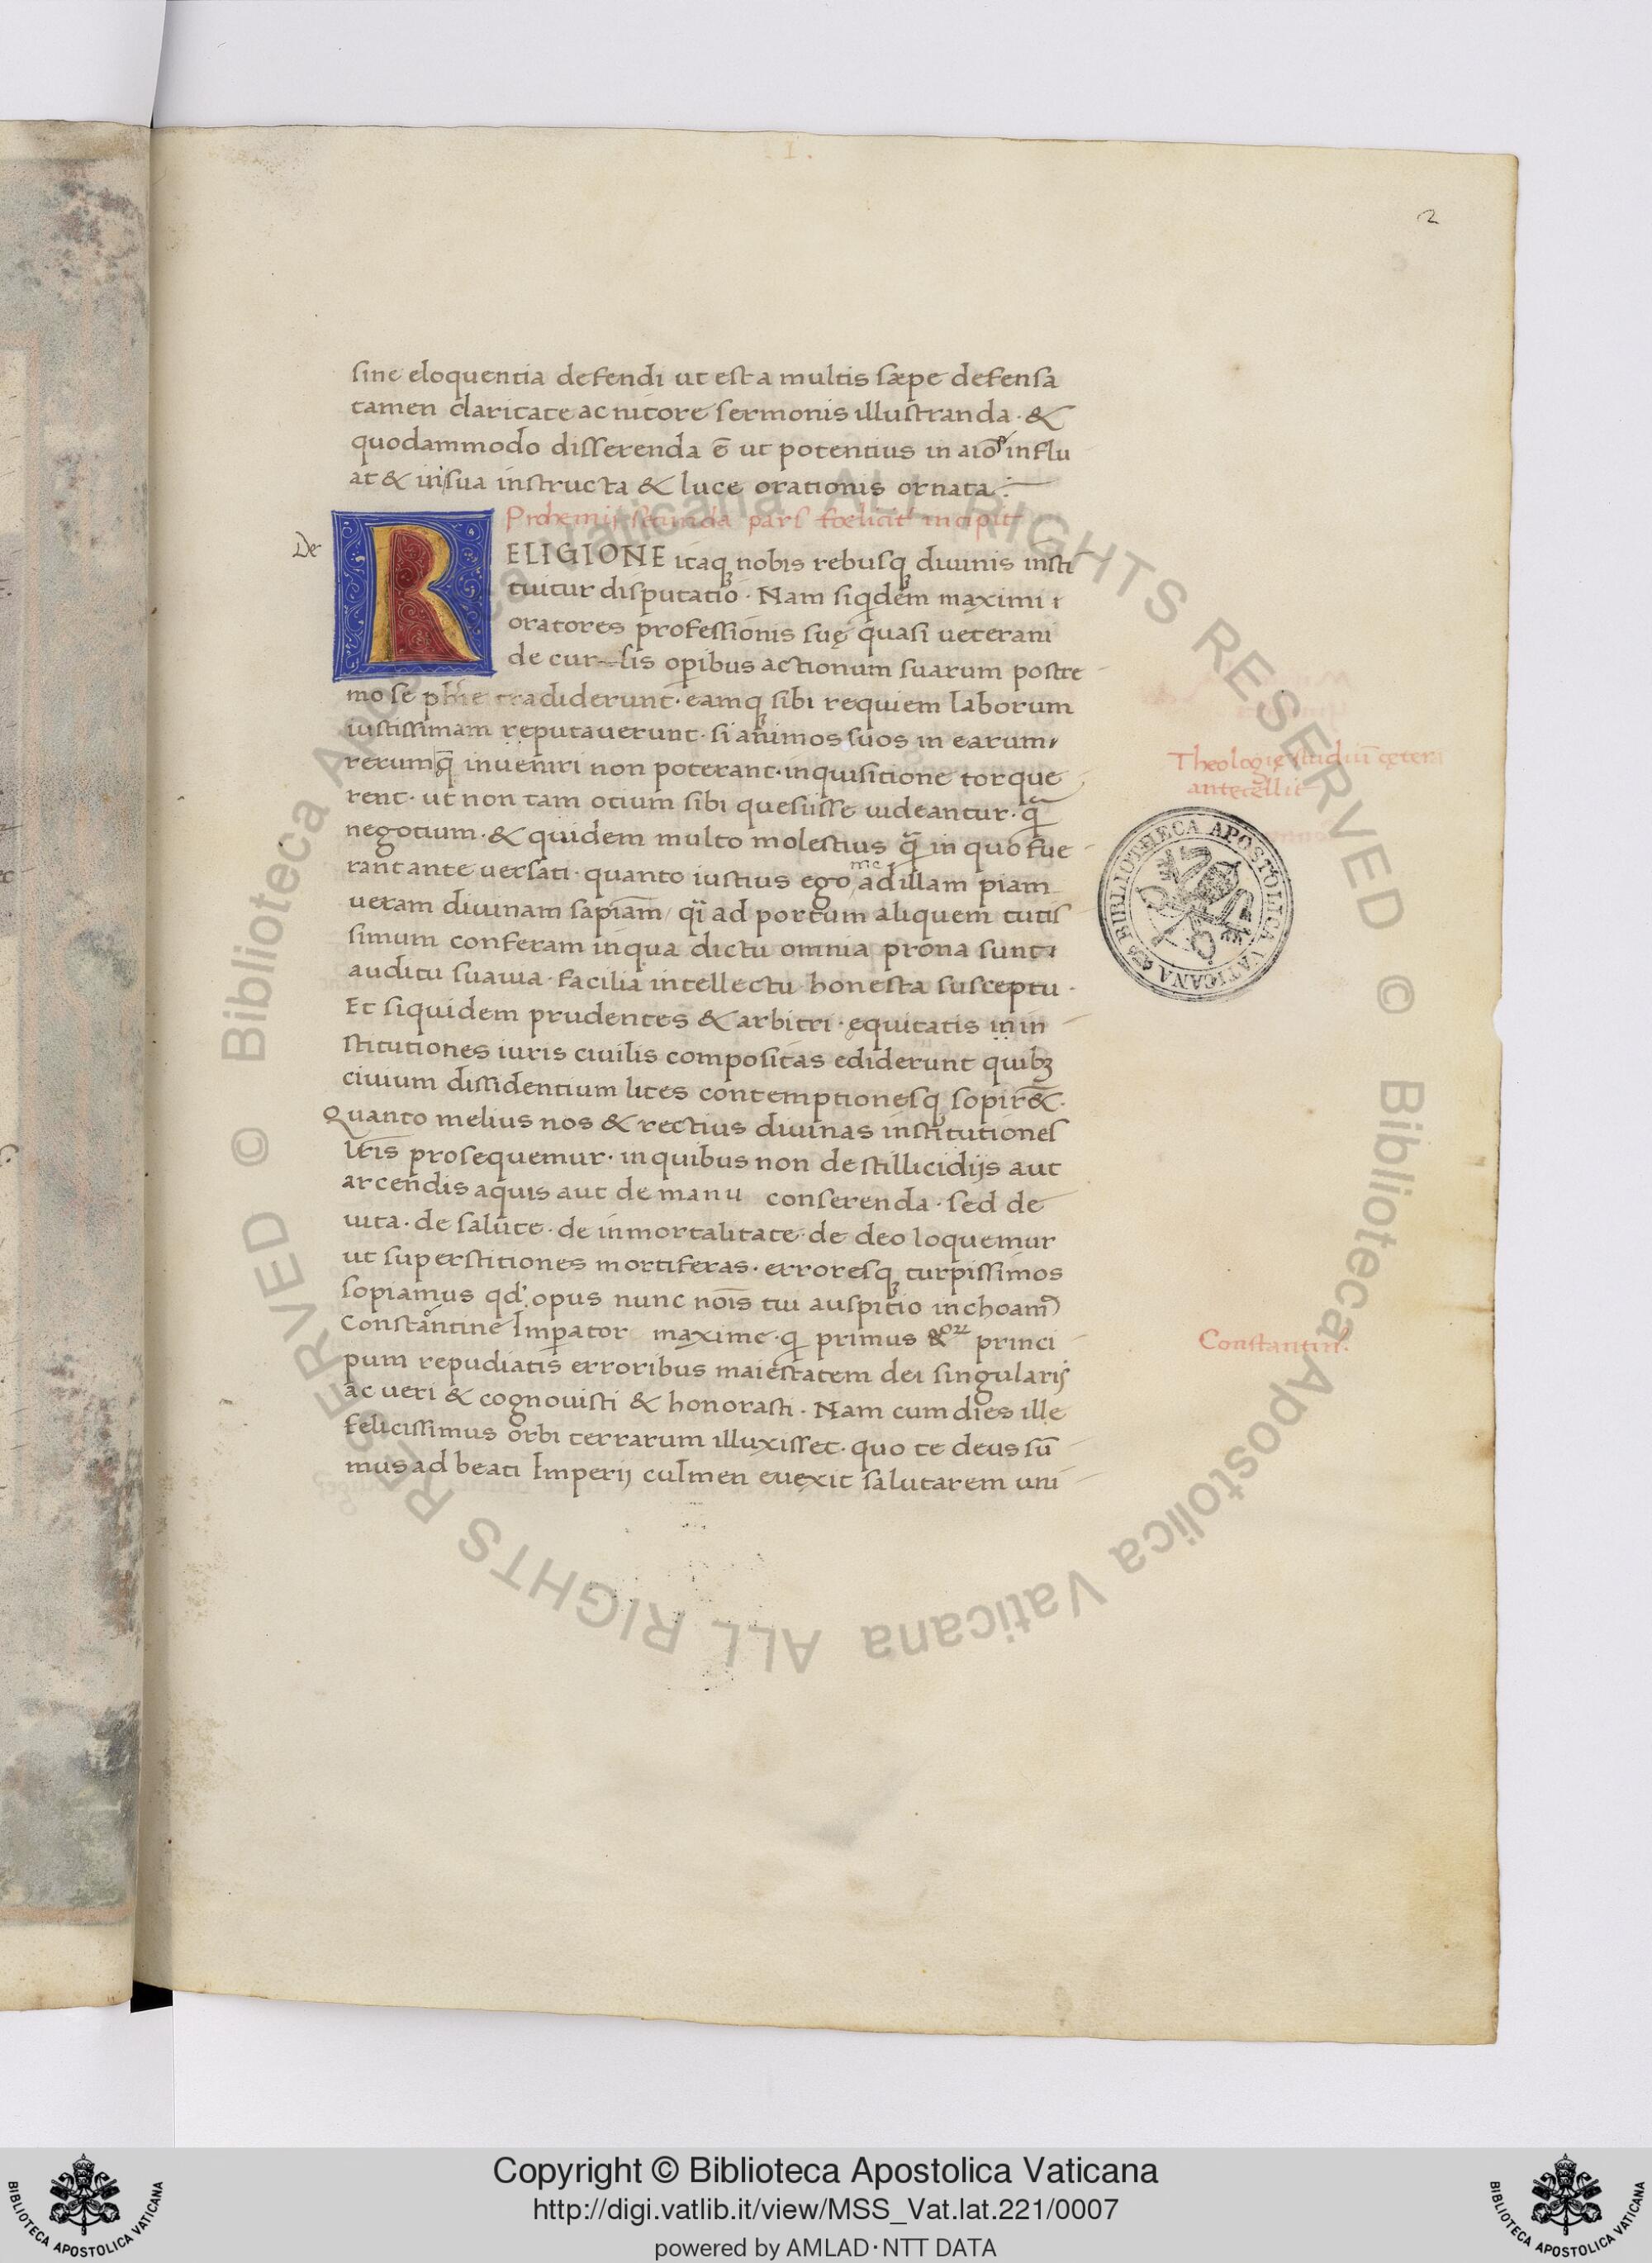 2
sine eloquentia defendi ut est a multis sæpe defensa
tamen claritate ac nitore sermonis illustranda · &
quodammodo disserenda ē ut potentius in aīoꝝ influ
at & in sua instructa & luce orationis ornata :
Prohemij secunda pars fœlicit incipit
De
RELIGIONE itaqꝫ nobis rebusqꝫ diuinis insti
tuitur disputatio · Nam siqdem maximi
oratores professionis suę quasi ueterani
de cur sis opibus actionum suarum postre
mo se phie tradiderunt · eamqꝫ sibi requiem laborum
iustissimam reputauerunt · si animos suos in earum
rerum q̄ inueniri non poterant · inquisitione torque
rent · ut non tam otium sibi quesiisse uideantur · q̄
negotium · & quidem multo molestius q̄ in quo fue
rant ante uersati · quanto iustius ego me ad illam piam
ueram diuinam sapiam / qi ad portum aliquem tutis
simum conferam in qua dictu omnia prona sunt
auditu suauia · facilia intellectu honesta susceptu ·
Et siquidem prudentes & arbitri · ęquitatis in in
stitutiones iuris ciuilis compositas ediderunt quibꝫ
ciuium dissidentium lites contemptionesqꝫ sopir&̄ ·
Quanto melius nos & rectius diuinas institutiones
lr̄is prosequemur · in quibus non de stillicidijs aut
arcendis aquis aut de manu conserenda · sed de
uita · de salute · de inmortalitate · de deo loquemur
ut superstitiones mortiferas · erroresqꝫ turpissimos
sopiamus qd' opus nunc nois tui auspitio inchoamꝰ
Constantine Imperator maxime · q primus & oꝝ princi
pum repudiatis erroribus maiestatem dei singularis
ac ueri & cognouisti & honorasti · Nam cum dies ille
felicissimus orbi terrarum illuxisset · quo te deus sū
mus ad beati Imperij culmen euexit salutarem uni
Theologię studiū cęteris
antecellit
Constantin'
BIBLIOTECA APOSTOLICA VATICANA
© Biblioteca Apostolica Vaticana ALL RIGHTS RESERVED
© Biblioteca Apostolica Vaticana ALL RIGHTS RESERVED
BIBLIOTECA APOSTOLICA VATICANA
Copyright © Biblioteca Apostolica Vaticana
http://digi.vatlib.it/view/MSS_Vat.lat.221/0007
powered by AMLAD·NTT DATA
BIBLIOTECA APOSTOLICA VATICANA